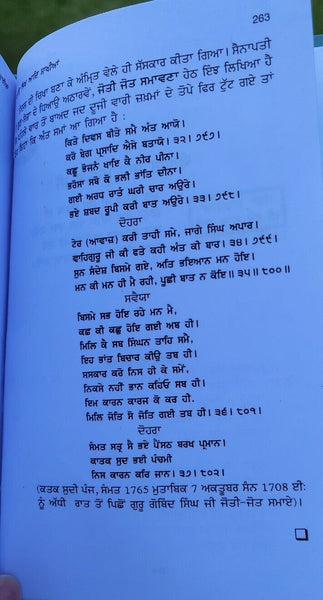 263
ਦੀ ਚਿਖਾ ਬਣਾ ਕੇ ਅੰਮ੍ਰਿਤ ਵੇਲੇ ਹੀ ਸੱਸਕਾਰ ਕੀਤਾ ਗਿਆ। ਸੈਨਾਪਤੀ
ਦੇ ਧਿਆਇ ਅਠਾਰਵੇਂ, ਜੋਤੀ ਜੋਤ ਸਮਾਵਣਾ ਹੇਠ ਇੰਝ ਲਿਖਿਆ ਹੈ
ਵਾਰ ਤੋਂ ਬਾਅਦ ਜਦ ਦੂਜੀ ਵਾਰੀ ਜ਼ਖ਼ਮਾਂ ਦੇ ਤੋਪੇ ਫਿਰ ਟੁੱਟ ਗਏ ਤਾਂ
ਕਿ ਅੰਤ ਸਮਾਂ ਆ ਗਿਆ ਹੈ :
ਕਿਤੇ ਦਿਵਸ ਬੀਤੇ ਸਮੇਂ ਅੰਤ ਆਯੋ।
ਕਰੋ ਬੇਗ ਪ੍ਰਸਾਦਿ ਐਸੇ ਬਤਾਯੋ। ੩੨। ੭੯੭।
ਕਛੂ ਭੋਜਨੰ ਖਾਇ ਕੇ ਨੀਰ ਪੀਨਾ।
ਭਰੋਸਾ ਸਬੋ ਕੋ ਭਲੀ ਭਾਂਤਿ ਦੀਨਾ।
ਗਈ ਅਰਧ ਰਾਤੰ ਘਰੀ ਚਾਰ ਅਉਰੇ।
ਭਏ ਸ਼ਬਦ ਰੂਪੀ ਕਰੀ ਬਾਤ ਅਉਰੇ। ੩੩। ੭੯੮।
ਦੋਹਰਾ
ਟੇਰ (ਆਵਾਜ਼) ਕਰੀ ਤਾਹੀ ਸਮੇ, ਜਾਗੇ ਸਿੰਘ ਅਪਾਰ।
ਵਾਹਿਗੁਰੂ ਜੀ ਕੀ ਫਤੇ ਕਹੀ ਅੰਤ ਕੀ ਬਾਰ। ੩੪। ੭੯੯।
ਸੁਨ ਸੰਦੇਸ਼ ਬਿਸਮੇ ਗਏ, ਅਤਿ ਭਇਆਨ ਮਨ ਹੋਇ।
ਮਨ ਕੀ ਮਨ ਹੀ ਮੈ ਰਹੀ, ਪੂਛੀ ਬਾਤ ਨ ਕੋਇ॥ ੩੫॥ ੮੦੦॥
ਸਵੈਯਾ
ਬਿਸਮੇ ਸਭ ਹੋਇ ਰਹੇ ਮਨ ਮੈ,
ਕਛ ਕੀ ਕਛੁ ਹੋਇ ਗਈ ਅਬ ਹੀ।
ਮਿਲਿ ਕੈ ਸਬ ਸਿੰਘਨ ਤਾਹਿ ਸਮੈ,
ਇਹ ਭਾਂਤ ਬਿਚਾਰ ਕੀਉ ਤਬ ਹੀ।
ਸਸਕਾਰ ਕਰੋ ਨਿਸ ਹੀ ਕੇ ਸਮੇਂ,
ਨਿਕਸੇ ਨਹੀਂ ਭਾਨ ਕਹਿਓ ਸਬ ਹੀ।
ਇਮ ਕਾਰਨ ਕਾਰਜ ਕੋ ਕਰ ਹੀ।
ਮਿਲਿ ਜੋਤਿ ਸੋ ਜੋਤਿ ਗਈ ਤਬ ਹੀ। ੩੬। ੮੦੧।
ਦੋਹਰਾ
ਸੰਮਤ ਸਤ੍ਰ ਸੈ ਭਏ ਪੈਂਸਠ ਬਰਖ ਪ੍ਰਮਾਨ।
ਕਾਤਕ ਸੁਦ ਭਈ ਪੰਚਮੀ
ਨਿਸ ਕਾਰਨ ਕਰਿ ਜਾਨ। ੩੭। ੮੦੨।
(ਕਤਕ ਸੁਦੀ ਪੰਜ, ਸੰਮਤ 1765 ਮੁਤਾਬਿਕ 7 ਅਕਤੂਬਰ ਸੰਨ 1708 ਈ:
ਨੂੰ ਅੱਧੀ ਰਾਤ ਤੋਂ ਪਿਛੋਂ ਗੁਰੂ ਗੋਬਿੰਦ ਸਿੰਘ ਜੀ ਜੋਤੀ-ਜੋਤ ਸਮਾਏ)।